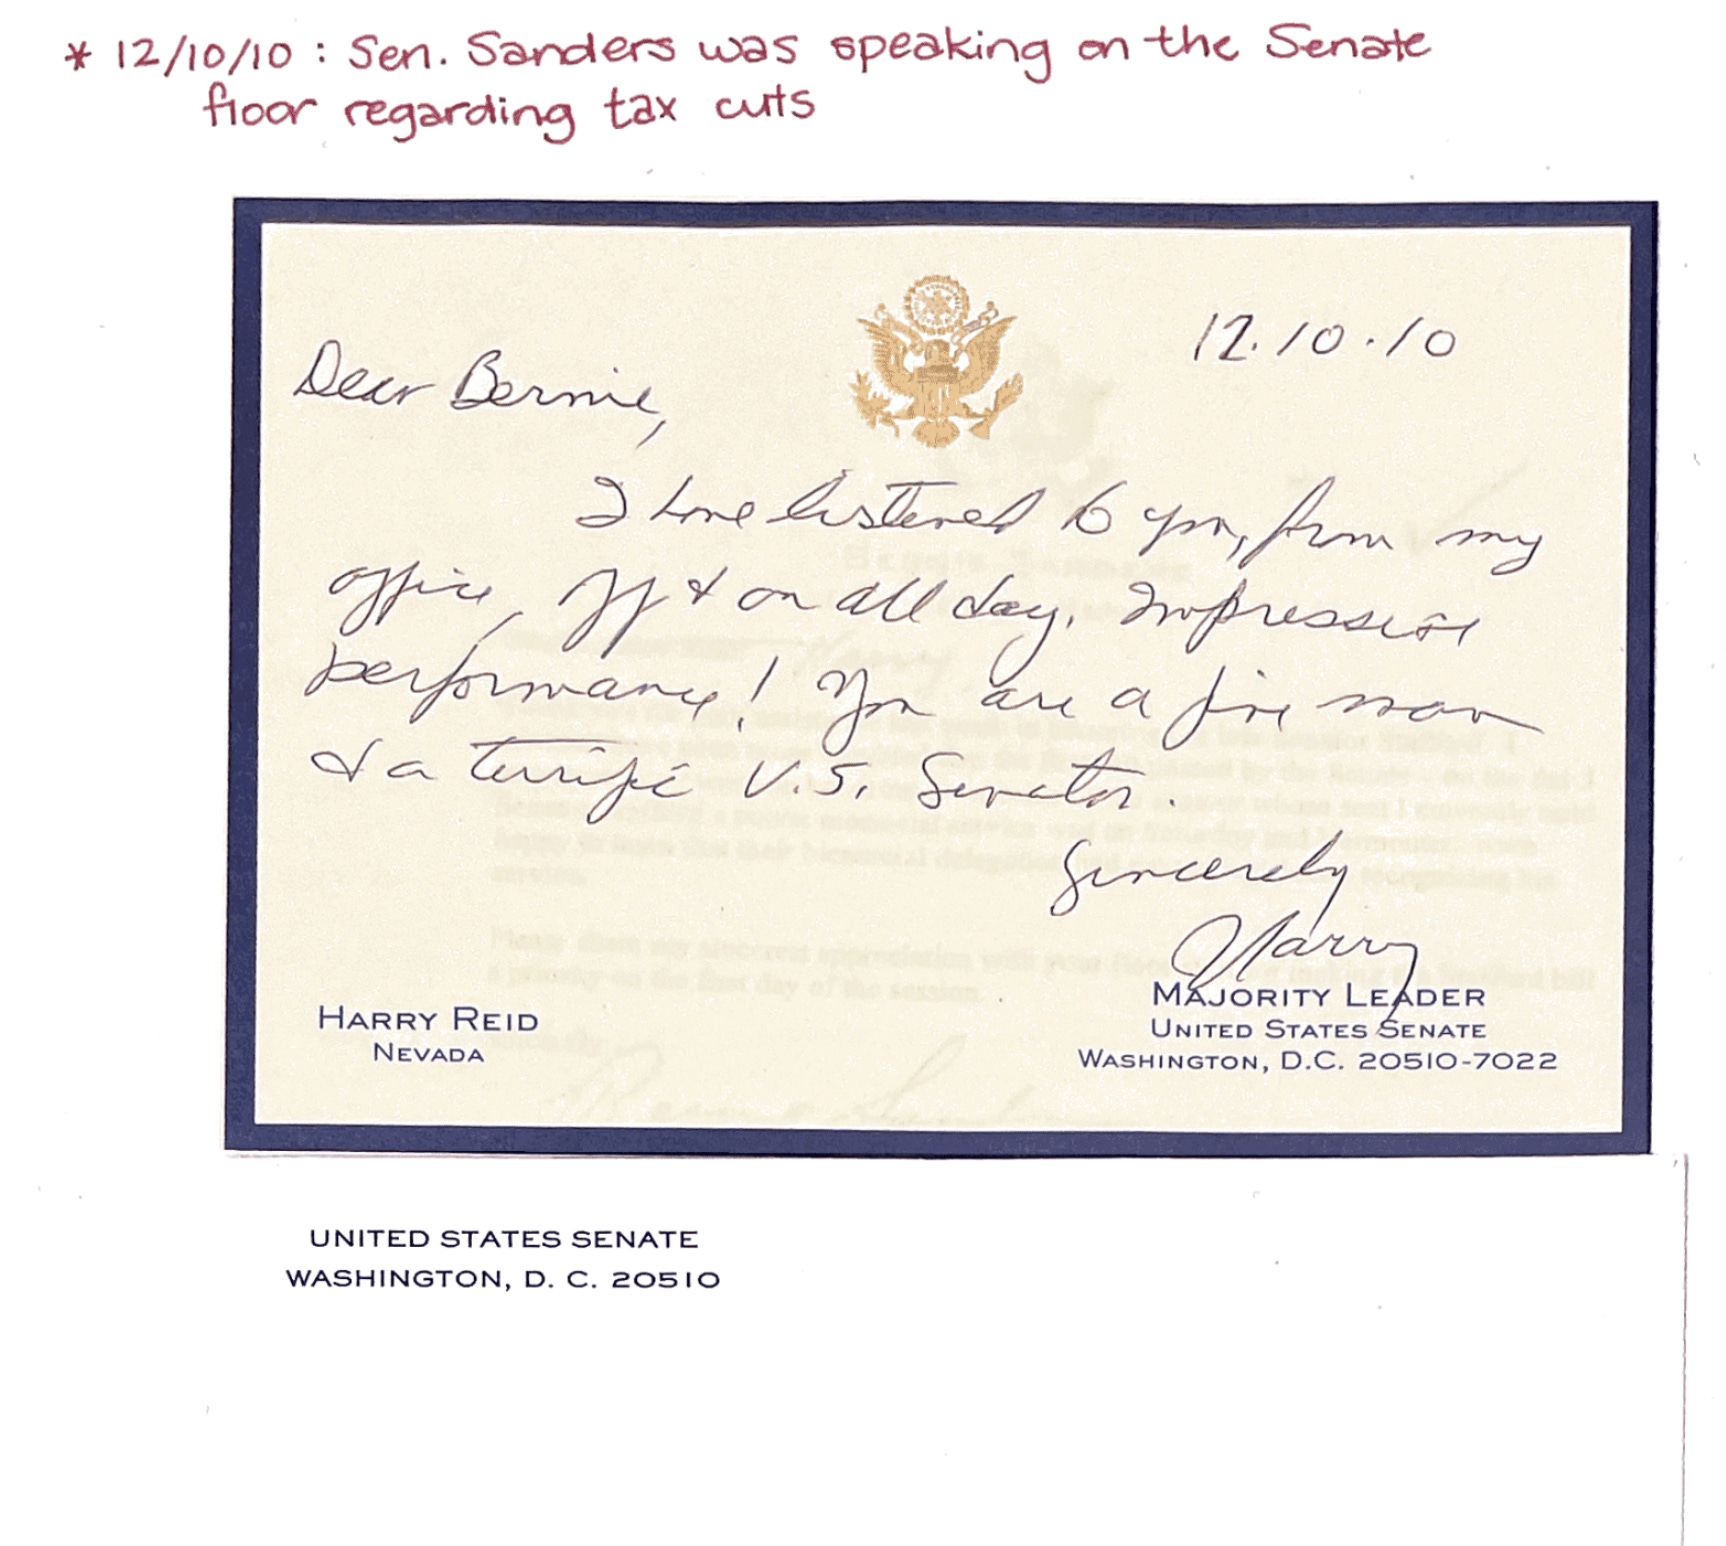 * 12/10/10 : Sen. Sanders was speaking on the Senate
floor regarding tax cuts
12.10.10
Dear Bernie,
I have listened to you, from my
office, off & on all day. Impressive
performance! You are a fine man
& a terrific U.S. Senator.
Sincerely
Harry
HARRY REID
NEVADA
MAJORITY LEADER
UNITED STATES SENATE
WASHINGTON, D.C. 20510-7022
UNITED STATES SENATE
WASHINGTON, D. C. 20510